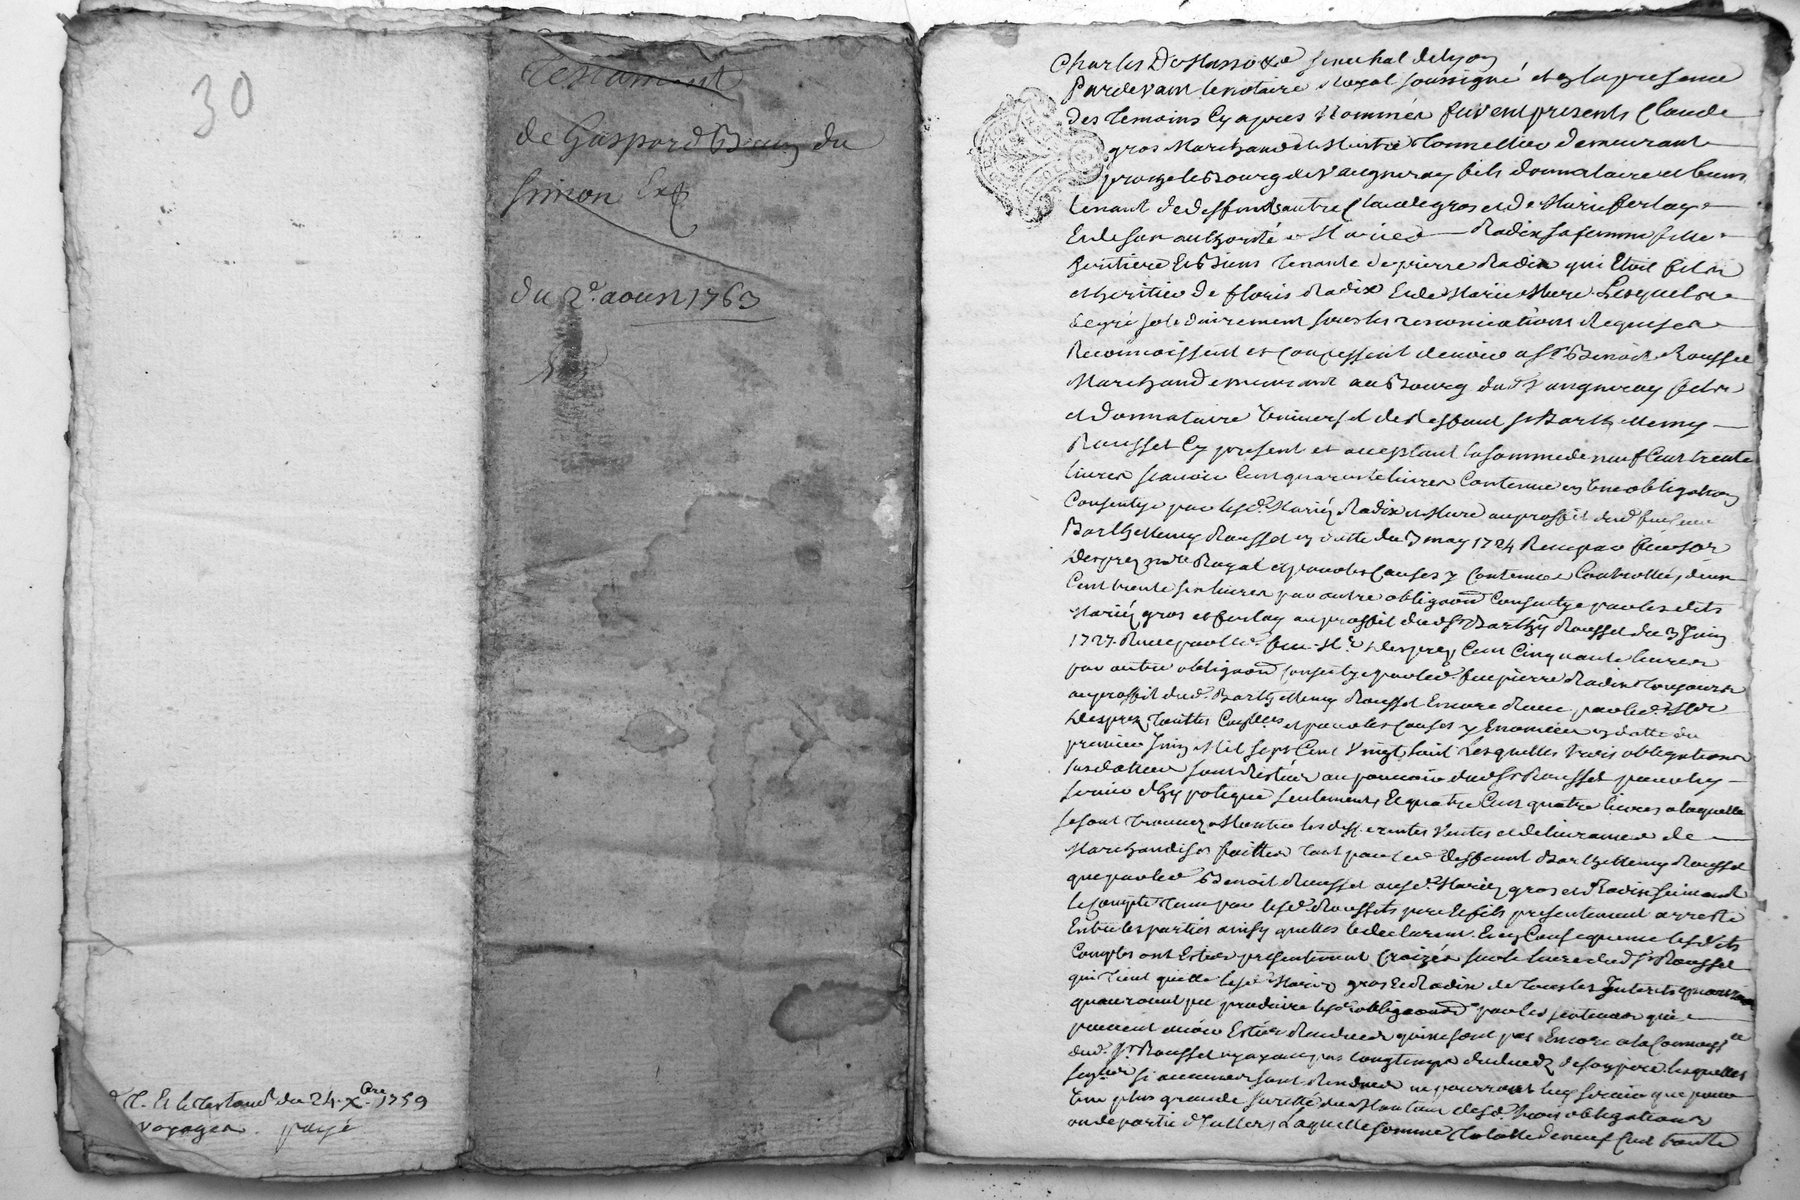 30
Testament
de Gaspard du
simon
du 2e. aoust 1763
du 24. Xbre 1759
voyages. payé
Charles senechal de lyon
Pardevant le notaire Royal soussigné et en la presence
des temoins Cy apres Nommés furent presents Claude
gros Marchand et Maitre Tonnellier demeurant
proche le Bourg de Vaugneray fils donnataire et biens
tenant de deffunts autre Claude gros et de Marie ferlay
Et de son authorité Marie Radix sa femme fille
heritiere Et Biens tenante de pierre Radix qui Etoit fils
et heritier de floris Radix Et de Marie Mure Lesquels
de gré solidairement sous les renonciations Requises
Reconnoissent et Confessent devoir a sr. Benoit Roussel
Marchand demeurant au Bourg dud. Vaugneray fils
et donnataire Universel de deffunt sr Barthellemy
Roussel Cy present et acceptant la somme de neuf Cent trente
livres scavoir Cent quarante livres Contenue en Une obligation
Consentye par lesd. Mariés Radix et Mure au proffit dud. feu sieur
Barthellemy Roussel en datte du 3 may 1724 Recu par feu
Desprez nore Royal et pour les Causes y Contenues Controllé, deux
Cent trente six livres par autre obligaon Consentye par lesdits
Mariés gros et ferlay au proffit dud. sr Barthy Roussel du 3 Juin
1727 Recue par led. feu Me Desprez, Cent Cinquante livres
par autre obligaon Consentye par led. feu pierre Radix toujours
au proffit dud. Barthellemy Roussel Encore Recue par led. Me
Desprez, touttes et pour les Causes y Enoncées en datte du
premier Juin Mil sept Cent Vingt huit Lesquelles trois obligations
susdattées sont Restées au pouvoir dud. sr Roussel pour luy
servir d'hypoteque seulement, Et quatre Cent quatre livres a laquelle
se sont trouvez Monter les differentes Ventes et delivrances de
Marchandises faittes tant par led. deffunt Barthellemy Roussel
que par led. Benoit Roussel auxd. Mariés gros et Radix suivant
le Compte tenu par lesd. Roussels pere Et fils presentement arresté
Entre les parties ainsy quelles le declarent. Et en Consequence lesdits
Comptes ont Estés presentement Croizés sur le livre dud. sr Roussel
qui tient quitte lesd. Mariés gros Et Radix de tous les Interets
quauroient pu produire lesd. obligaons par les sentences qui
peuvent avoir Estés Rendues qui ne sont pas Encore a la Connoisse
dud. sr Roussel ny ayant pas longtemps du deced de son pere lesquelles
si aucunes sont Rendues ne pourront luy servir que pour
Une plus grande suretté du Montant desd. trois obligations
ou de partie d'Icelles, Laquelle somme totalle de neuf Cent trente